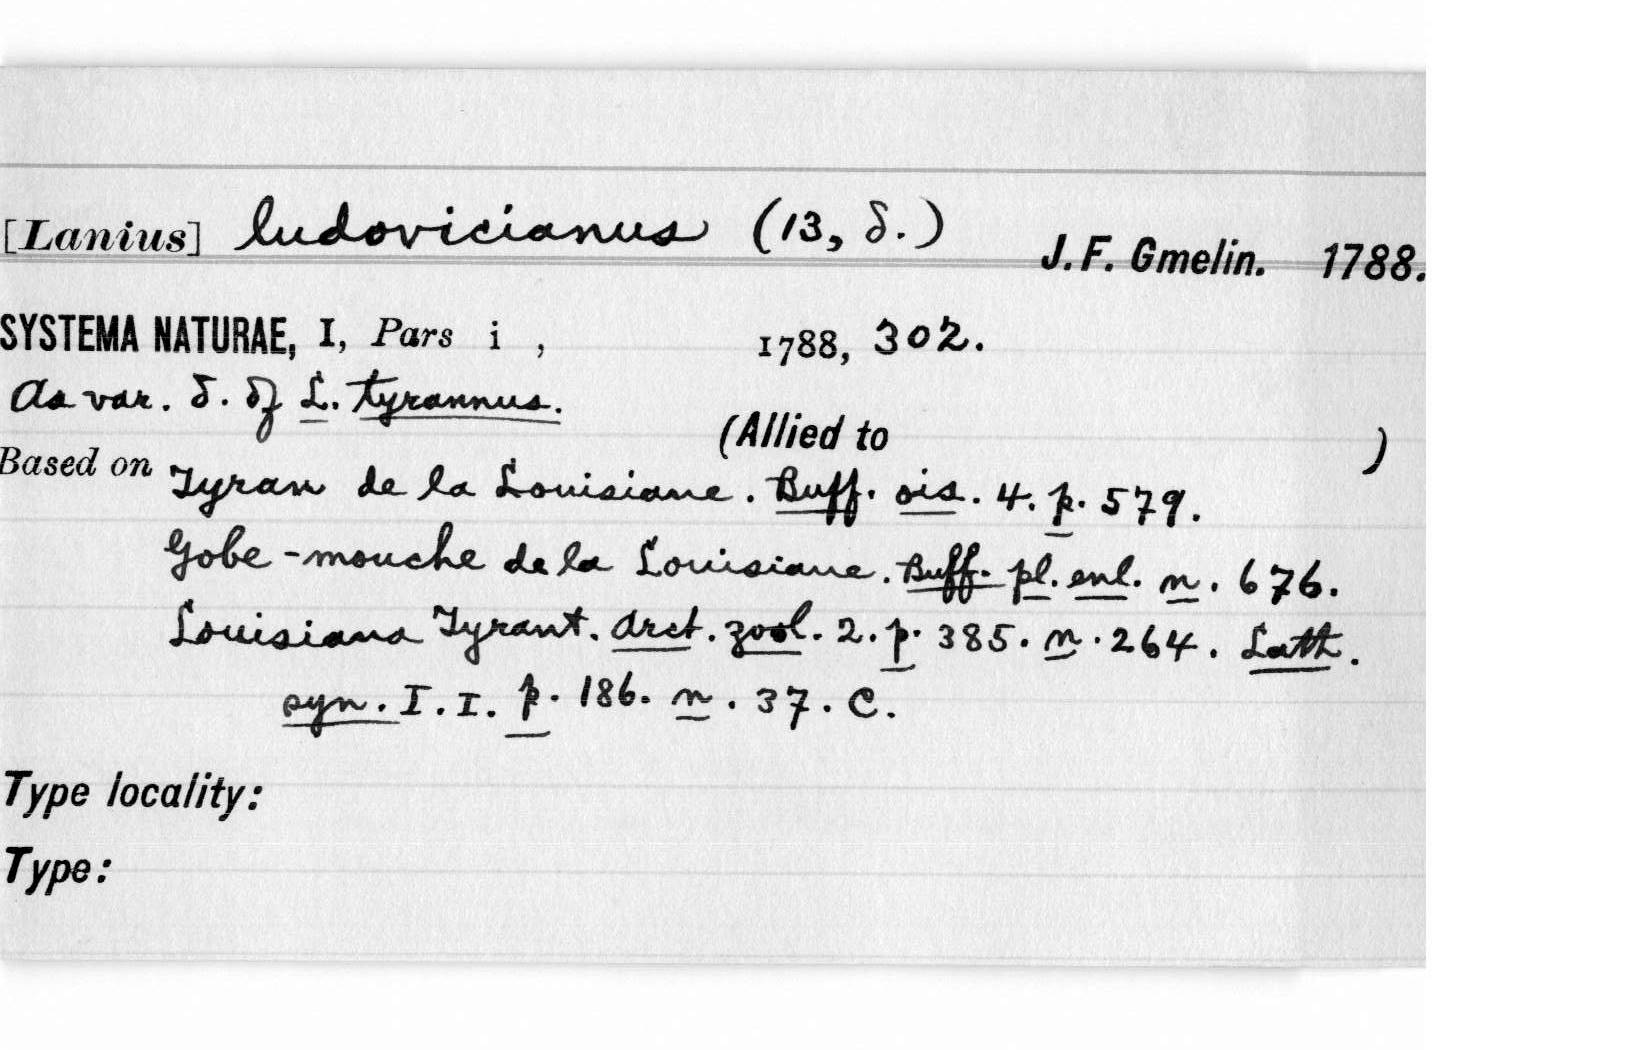 [Lanius] ludovicianus (13, δ.) J. F. Gmelin. 1788.
SYSTEMA NATURAE, I, Pars i , 1788, 302.
As var. δ. of L. tyrannus.
(Allied to )
Based on Tyran de la Louisiane. Buff. ois. 4. p. 579.
Gobe-mouche de la Louisiane. Buff. pl. enl. n. 676.
Louisiana Tyrant. Arct. zool. 2. p. 385. n. 264. Lath.
syn. I. I. p. 186. n. 37. C.
Type locality:
Type: